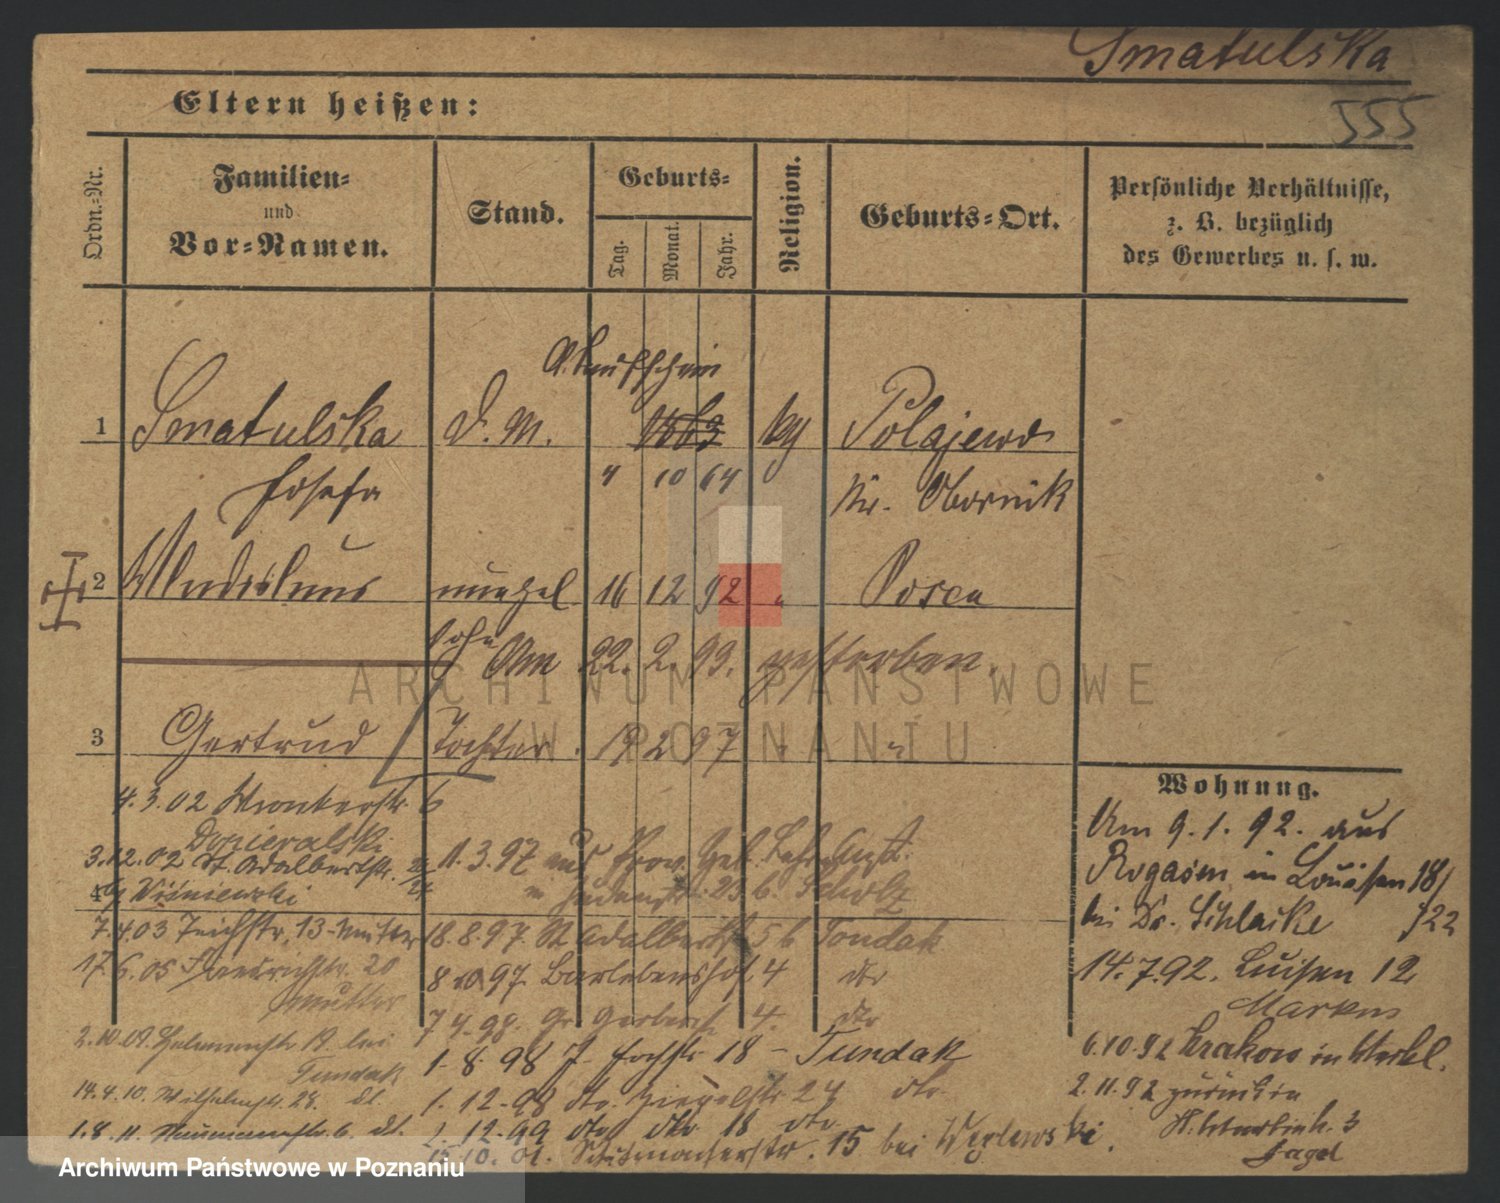 Smatulska
555
Eltern heißen:
Ordn.-Nr.
Familien-
und
Vor-Namen.
Stand.
Geburts-
Tag.
Monat.
Jahr.
Religion.
Geburts-Ort.
Persönliche Verhältnisse,
z. B. bezüglich
des Gewerbes u. s. w.
1 Smatulska D. M. 1863 Polajewo
Josefa 4 10 64 Kr. Obornik
2 Wladislaus unehel 16 12 92 " Posen
Sohn Am 22. 2. 93. gestorben.
3 Gertrud Tochter 19 2 97 " "
ARCHIWUM PAŃSTWOWE
W POZNANIU
Wohnung.
Am 9. 1. 92. aus
Rogasen in Louisen 18/
bei Dr. Schlacke 722
14. 7. 92. Luisen 12
Markus
6.10.92 Krakow in
2.11.92 zurück in
3
Jagel
4. 3. 02 Wronkerstr. 6
Dopieralski
3.12.02 St. Adalbertstr.
4 Wiśniewski
7.4.03 Teichstr. 13 Mutter
17.6.05 Friedrichstr. 20
Mutter
2.10.09. 19 bei
Tundak
14.4.10. Wilhelmstr. 28. dt.
1.8.11. Naumannstr. 6. dt.
11.3.97 aus Prov. Heb. Lehr Anst.
in Judenstr. 23 b. Scholz
18.8.97 St Adalbertstr 5 b Tondak
8 10 97 Barlebenshof 4 dto
7 4. 98. Gr. Gerberstr 4. dto
1. 8. 98 18 - Tundak
1. 12. 98 dto. Ziegelstr. 24 dto.
2. 12. 99 dto 18 dto
15.10.01. Schumacherstr. 15 bei
Archiwum Państwowe w Poznaniu